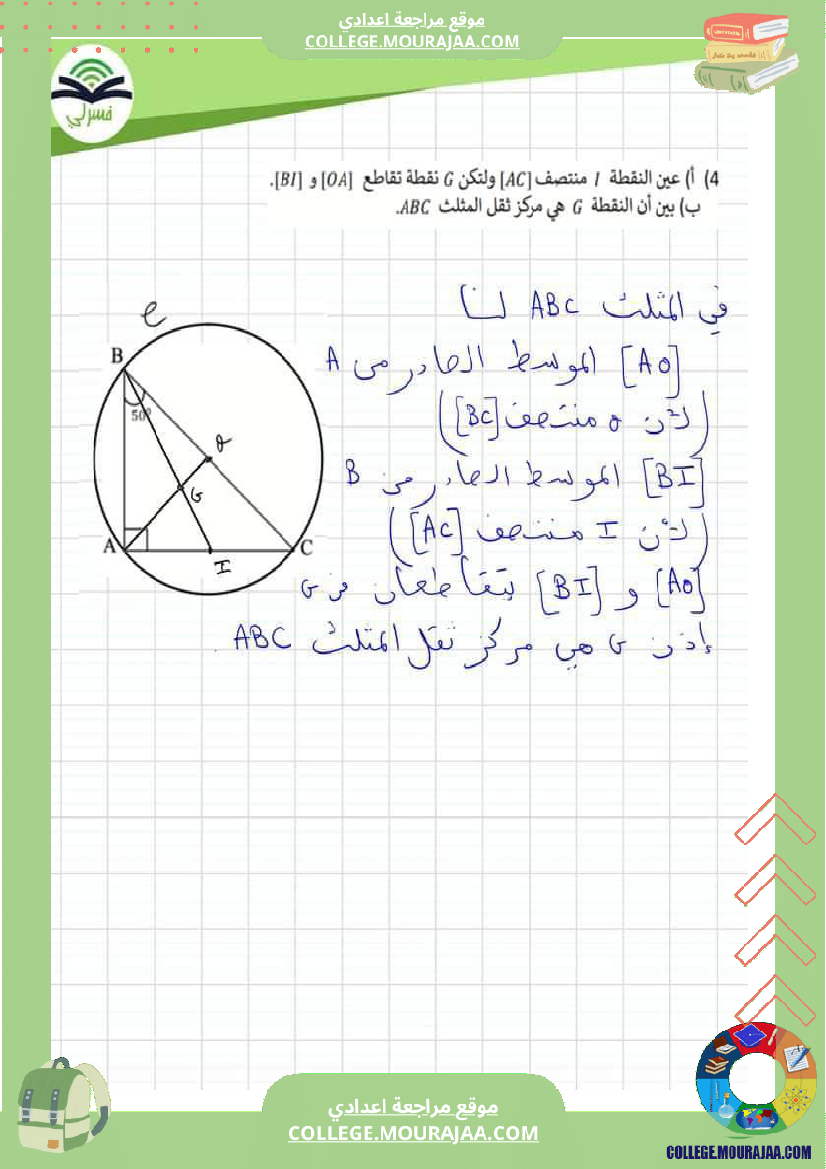 موقع مراجعة اعدادي
COLLEGE.MOURAJAA.COM
فسرلي
4) أ) عين النقطة I منتصف [AC] ولتكن G نقطة تقاطع [OA] و [BI].
ب) بين أن النقطة G هي مركز ثقل المثلث ABC.
في المثلث ABC لنا
[AO] الموسط الصادر من A
(لأن O منتصف [BC])
[BI] الموسط الصادر من B
(لأن I منتصف [AC])
[AO] و [BI] يتقاطعان في G
إذن G هي مركز ثقل المثلث ABC.
B
50°
O
G
A
I
C
موقع مراجعة اعدادي
COLLEGE.MOURAJAA.COM
COLLEGE.MOURAJAA.COM